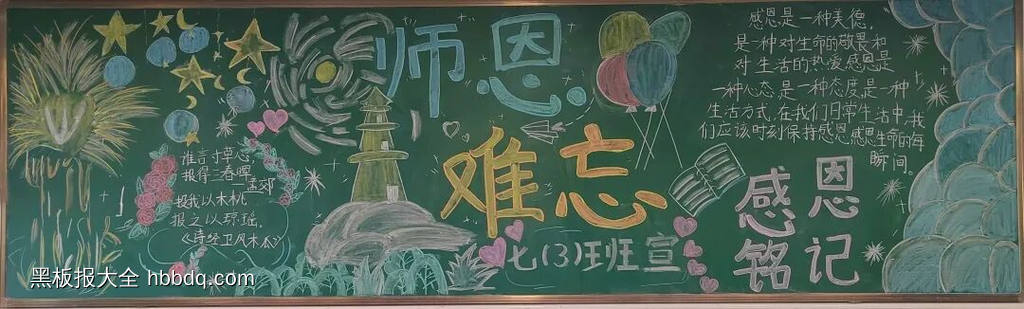 师恩
难忘
七(3)班宣
谁言寸草心
报得三春晖
—孟郊
投我以木桃
报之以琼瑶。
《诗经卫风木瓜》
感恩是一种美德,
是一种对生命的敬畏和
对生活的热爱感恩是
一种心态是一种态度是一种
生活方式,在我们日常生活中,我
们应该时刻保持感恩,感恩生命的每
瞬间。
感恩
铭记
黑板报大全 hbbdq.com